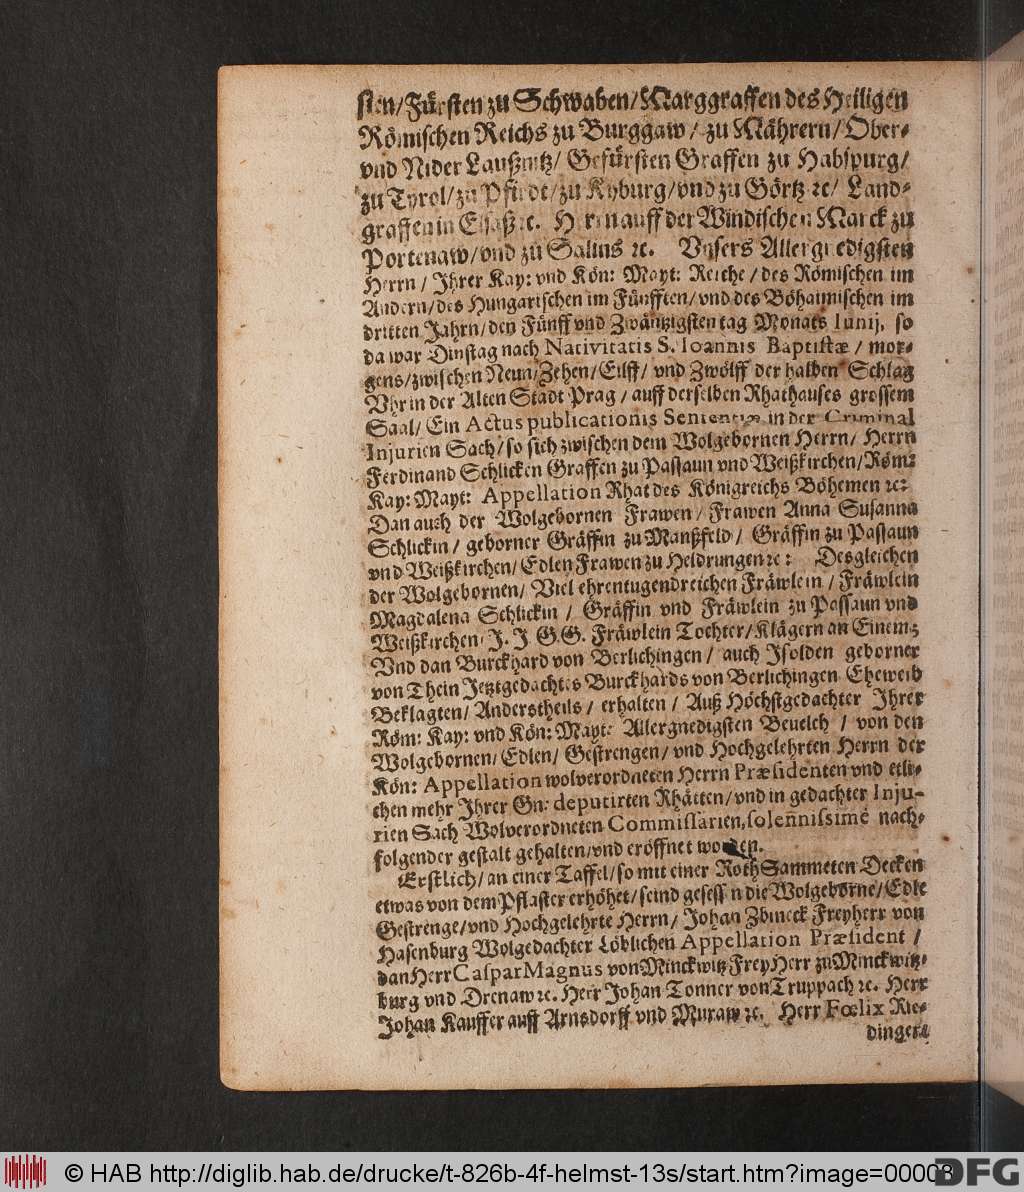 sten/Fürsten zu Schwaben/Marggraffen des Heiligen
Römischen Reichs zu Burggaw/zu Mährern/Ober-
vnd Nider Laußnitz/Gefürsten Graffen zu Habspurg/
zu Tyrol/zu Pfirdt/zu Kyburg/vnd zu Görtz ꝛc/ Land-
graffen in Elsaß ꝛc. Herrn auff der Windischen Marck zu
Portenaw/vnd zu Salins ꝛc. Vnsers Allergnedigsten
Herrn/ Ihrer Kay: vnd Kön: Mayt: Reiche/des Römischen im
Andern/des Hungarischen im Fünfften/vnd des Böhaimischen im
dritten Jahrn/den Fünff vnd Zwäntzigsten tag Monats Iunij, so
da war Dinstag nach Nativitatis S. Ioannis Baptistæ/ mor-
gens/zwischen Neun/Zehen/Eilff/ vnd Zwölff der halben Schlag
Vhr in der Alten Stadt Prag/auff derselben Rhathauses grossem
Saal/Ein Actus publicationis Sententiæ in der Criminal
Injurien Sach/so sich zwischen dem Wolgebornen Herrn/ Herrn
Ferdinand Schlicken Graffen zu Passaun vnd Weißkirchen/Röm:
Kay: Mayt: Appellation Rhat des Königreichs Böhemen ꝛc:
Dan auch der Wolgebornen Frawen/ Frawen Anna Susanna
Schlickin/ geborner Gräffin zu Manßfeld/ Gräffin zu Passaun
vnd Weißkirchen/Edlen Frawen zu Heldrungen ꝛc: Desgleichen
der Wolgebornen/ Viel ehrentugendreichen Fräwlein/ Fräwlein
Magdalena Schlickin/ Gräffin vnd Fräwlein zu Passaun vnd
Weißkirchen/ J. J G.G. Fräwlein Tochter/Klägern an Einem:
Vnd dan Burckhard von Berlichingen/ auch Isolden geborner
von Thein Jetztgedachtes Burckhards von Berlichingen Eheweib
Beklagten/ Anderstheils/ erhalten/ Auß Höchstgedachter Ihrer
Röm: Kay: vnd Kön: Mayt: Allergnedigsten Beuelch/ von den
Wolgebornen/Edlen/ Gestrengen/ vnd Hochgelehrten Herrn der
Kön: Appellation wolverordneten Herrn Præsidenten vnd etli-
chen mehr Ihrer Gn: deputirten Rhätten/vnd in gedachter Inju-
rien Sach Wolverordneten Commissarien, solennissimè nach-
folgender gestalt gehalten/vnd eröffnet worden.
Erstlich/an einer Taffel/so mit einer Roth Sammeten Decken
etwas von dem Pflaster erhöhet/seind gesessen die Wolgeborne/Edle
Gestrenge/vnd Hochgelehrte Herrn/ Johan Zbineck Freyherr von
Hasenburg Wolgedachter Löblichen Appellation Præsident/
dan Herr Caspar Magnus von Minckwitz Frey Herr zu Minckwitz-
burg vnd Drenaw ꝛc. Herr Johan Tonner von Truppach ꝛc. Herr
Johan Kauffer auff Arnsdorff vnd Muraw ꝛc. Herr Fœlix Rie-
dinger/
© HAB http://diglib.hab.de/drucke/t-826b-4f-helmst-13s/start.htm?image=00008
DFG